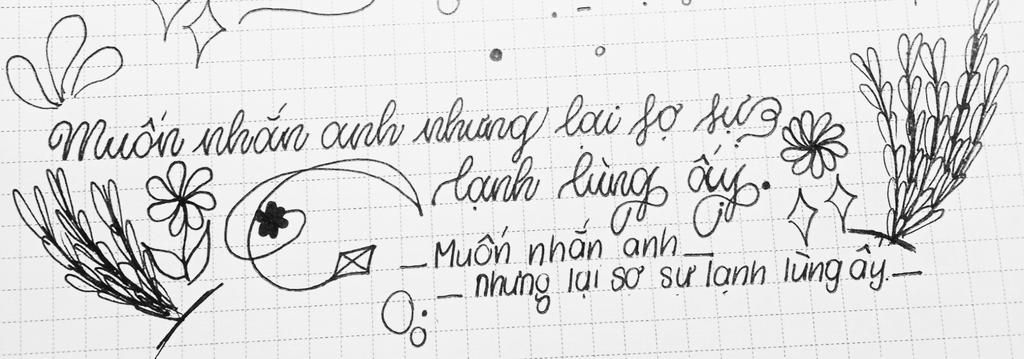 Muốn nhắn anh nhưng lại sợ sự
lạnh lùng ấy.
— Muốn nhắn anh —
— nhưng lại sợ sự lạnh lùng ấy. —